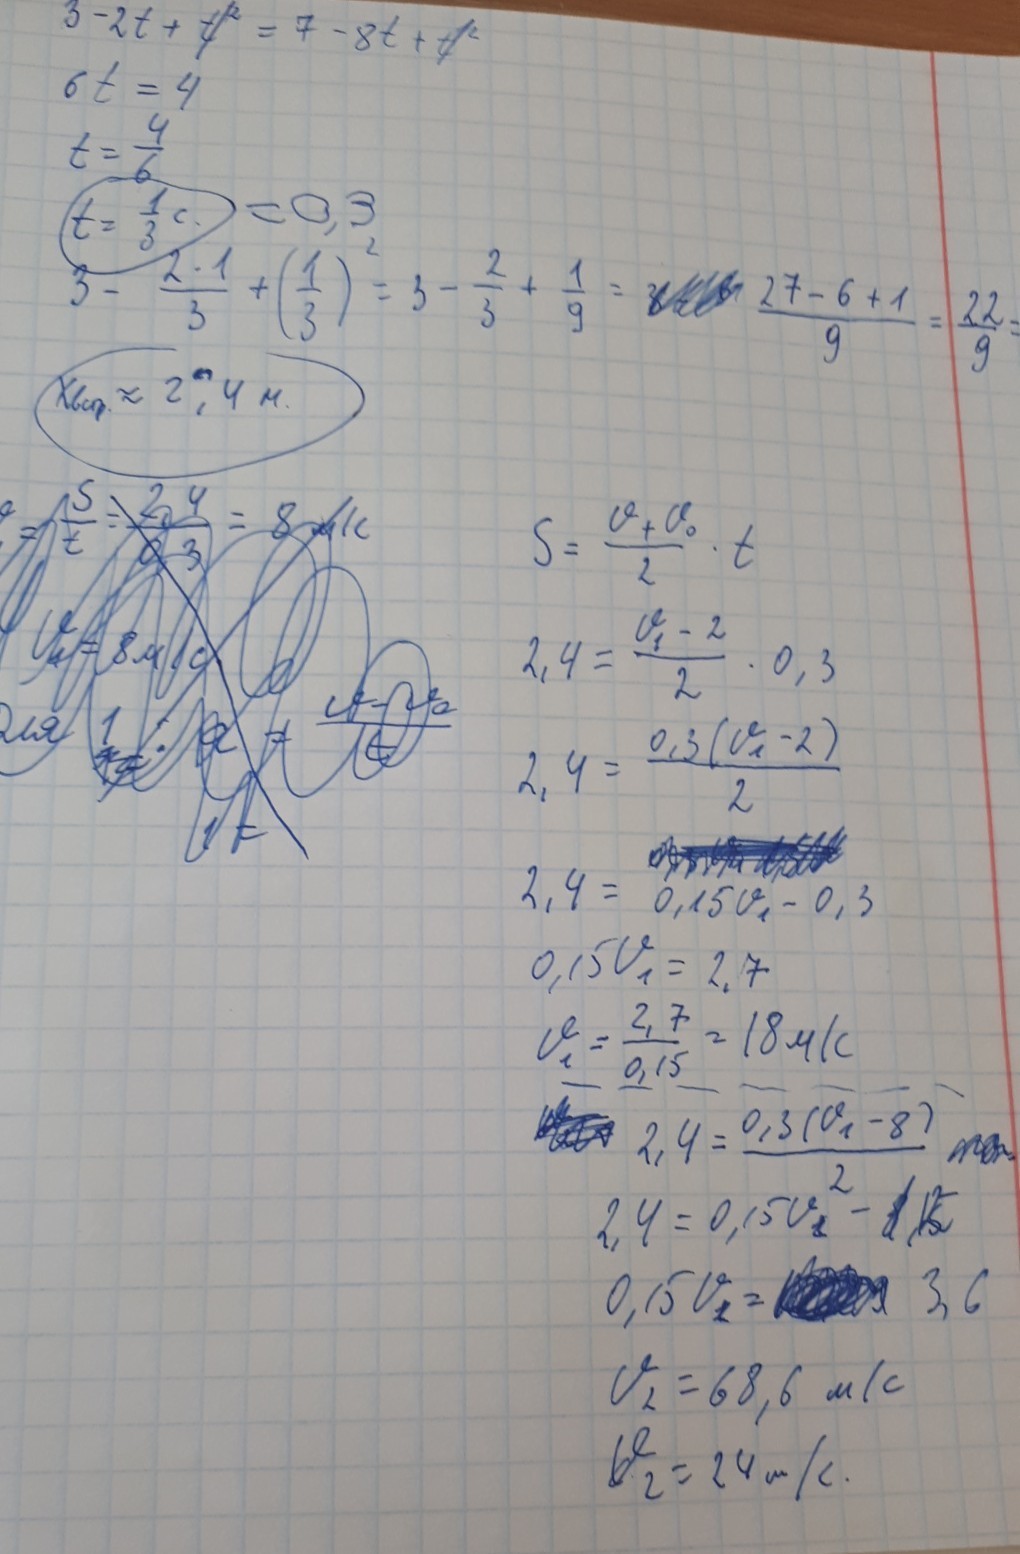 3 - 2t + t² = 7 - 8t + t²
6t = 4
t = 4/6
t = 1/3 с. = 0,3
3 - 2·1/3 + (1/3)² = 3 - 2/3 + 1/9 = 27 - 6 + 1/9 = 22/9 =
Xвстр. ≈ 2,4 м.
= S/t = 2,4/0,3 = 8 м/с
V₁ = 8 м/с
Для 1 : a = v - v₀/t
1 =
S = v + v₀/2 · t
2,4 = v₁ - 2/2 · 0,3
2,4 = 0,3(v₁ - 2)/2
2,4 = 0,15v₁ - 0,3
0,15v₁ = 2,7
v₁ = 2,7/0,15 = 18 м/с
2,4 = 0,3(v₁ - 8)/2
2,4 = 0,15v₂ -
0,15v₂ = 3,6
v₂ = 68,6 м/с
v₂ = 24 м/с.